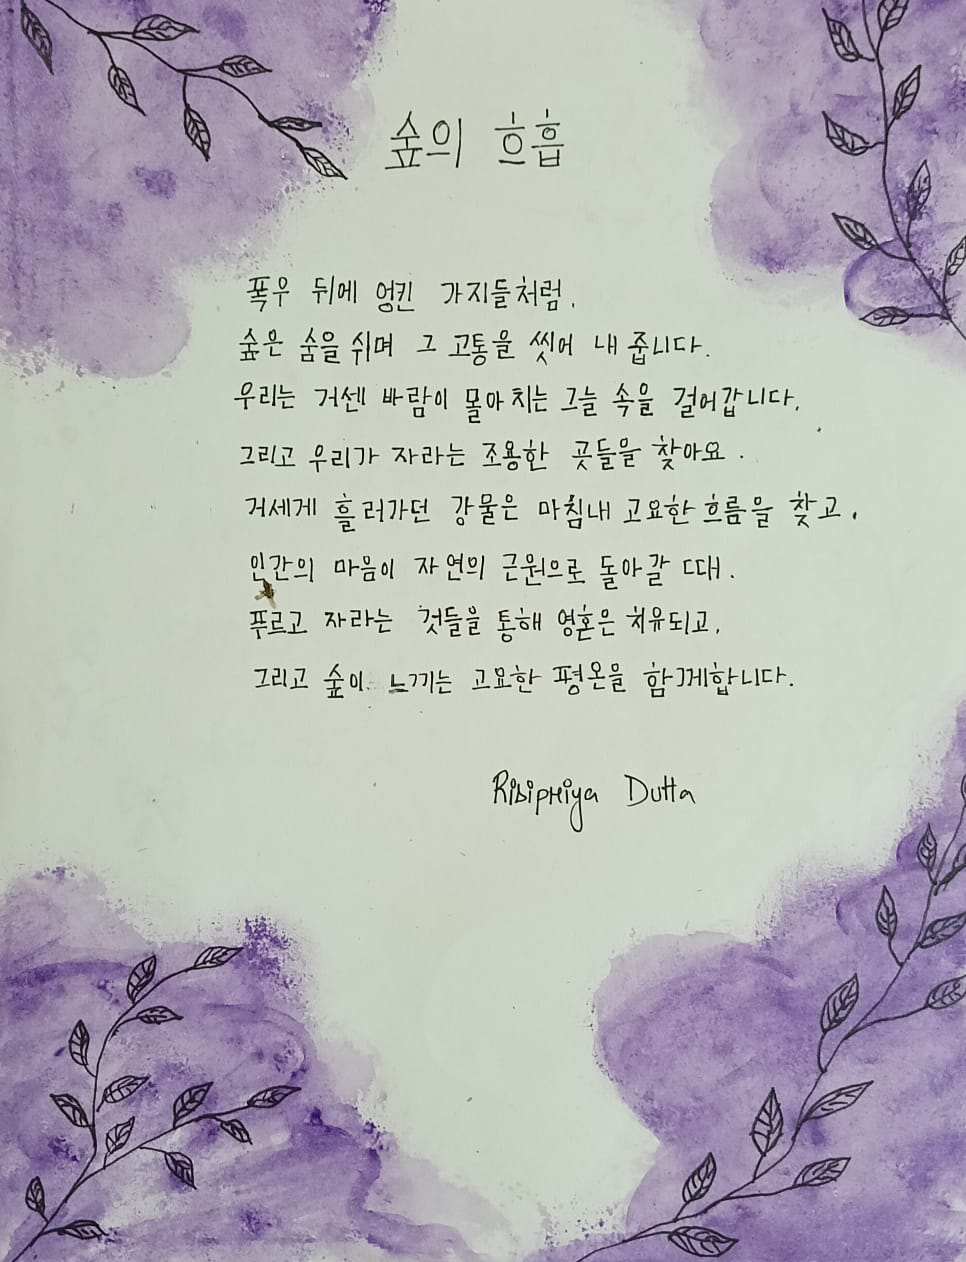 숲의 흐흡
폭우 뒤에 엉킨 가지들처럼,
숲은 숨을 쉬며 그 고통을 씻어 내 줍니다.
우리는 거센 바람이 몰아치는 그늘 속을 걸어갑니다,
그리고 우리가 자라는 조용한 곳들을 찾아요.
거세게 흘러가던 강물은 마침내 고요한 흐름을 찾고,
인간의 마음이 자연의 근원으로 돌아갈 때.
푸르고 자라는 것들을 통해 영혼은 치유되고,
그리고 숲이 느끼는 고요한 평온을 함께합니다.
Ribipriya Dutta